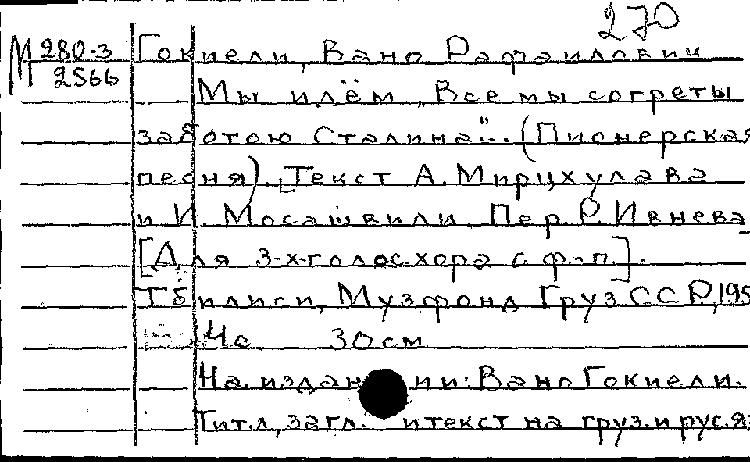 270
М 280-3 Гокиели, Вано Рафаилович
2566 Мы идём Все мы согреты
заботою Сталина"... (Пионерская
песня). Текст А. Мирцхулава
и И. Мосашвили. Пер. Р. Ивнева
[Для 3-х-голос. хора с ф-п.].
Тбилиси, Музфонд Груз ССР, 195
4 с. 30 см
На издании: Вано Гокиели.
Тит. л., загл. и текст на груз. и рус. яз